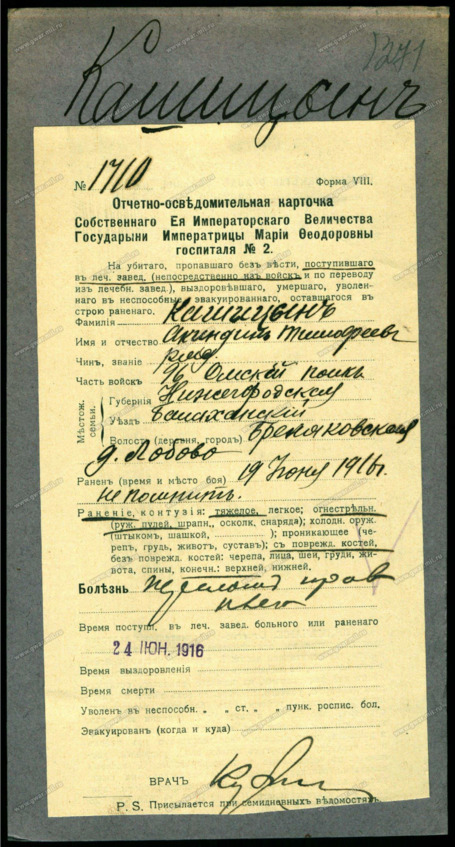 Кашицынъ
1371
№ 1710 Форма VIII.
Отчетно-освѣдомительная карточка
Собственнаго Ея Императорскаго Величества
Государыни Императрицы Маріи Ѳеодоровны
госпиталя № 2.
На убитаго, пропавшаго безъ вѣсти, поступившаго
въ леч. завед. (непосредственно изъ войскъ и по переводу
изъ лечебн. завед.), выздоровѣвшаго, умершаго, уволен-
наго въ неспособные, эвакуированнаго, оставшагося въ
строю раненаго.
Фамилія Кашицынъ
Имя и отчество Акиндинъ Тимофеевъ
Чинъ, званіе ряд.
Часть войскъ 96 Омскій полкъ
Мѣстож. семьи.
Губернія Нижегородская
Уѣздъ Балаханскій
Волость (деревня, городъ) Бремяковская
д. Лобово
Раненъ (время и мѣсто боя) 19 Іюня 1916г.
не помнитъ.
Раненіе, контузія: тяжелое, легкое; огнестрѣльн.
(руж. пулей, шрапн., осколк. снаряда); холодн. оруж.
(штыкомъ, шашкой, ); проникающее (че-
репъ, грудь, животъ, суставъ); съ поврежд. костей,
безъ поврежд. костей: черепа, лица, шеи, груди, жи-
вота, спины, конечн.: верхней, нижней.
Болѣзнь прав
плеч
Время поступл. въ леч. завед. больного или раненаго
24 ІЮН. 1916
Время выздоровленія
Время смерти
Уволенъ въ неспособн. „ „ ст. „ „ пунк. роспис. бол.
Эвакуированъ (когда и куда)
ВРАЧЪ
P. S. Присылается при семидневныхъ вѣдомостяхъ.